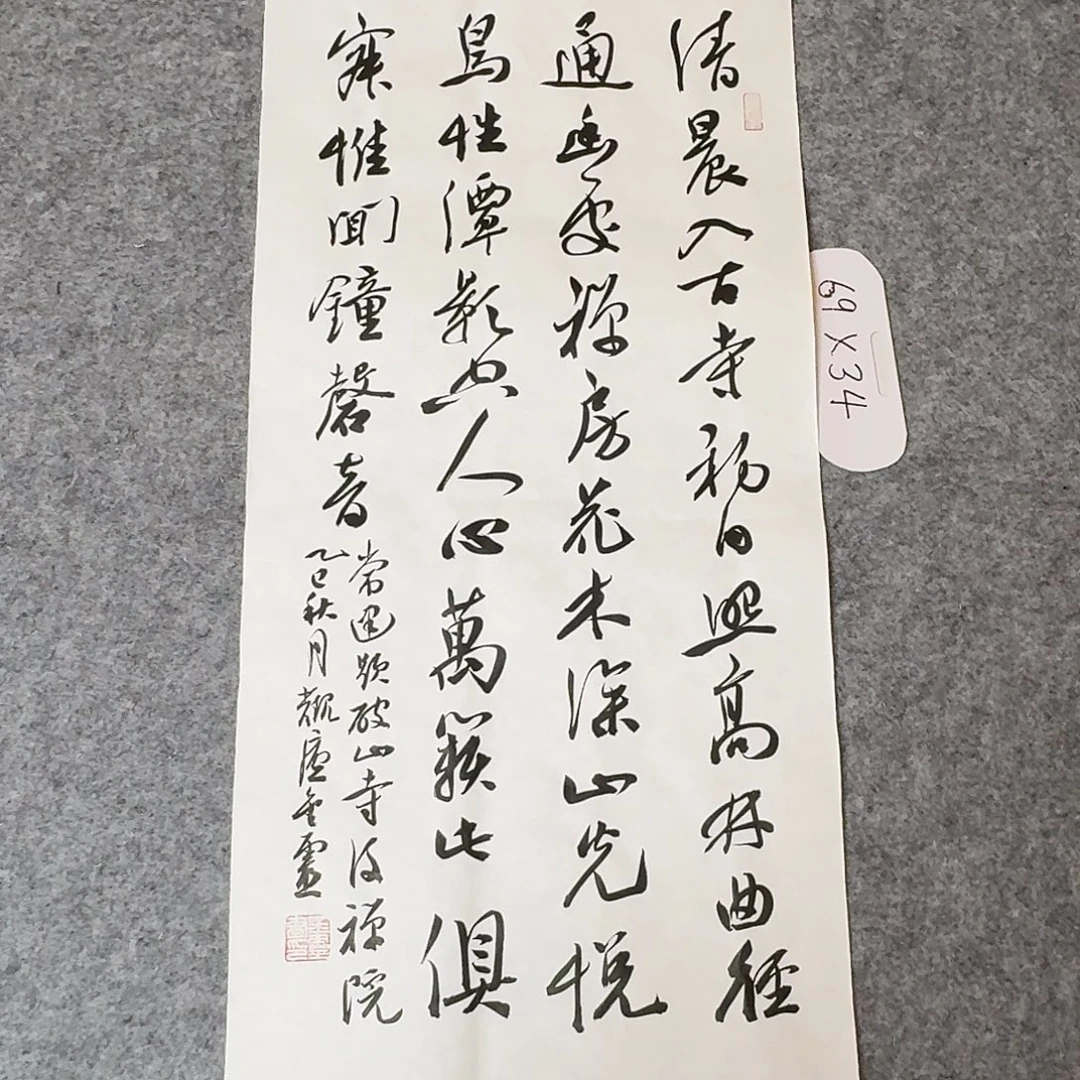 清晨入古寺初日照高林曲徑
通幽處禅房花木深山光悦
鳥性潭影空人心萬籟此俱
寂惟聞鐘磬音
常建題破山寺後禅院
乙巳秋月
69X34